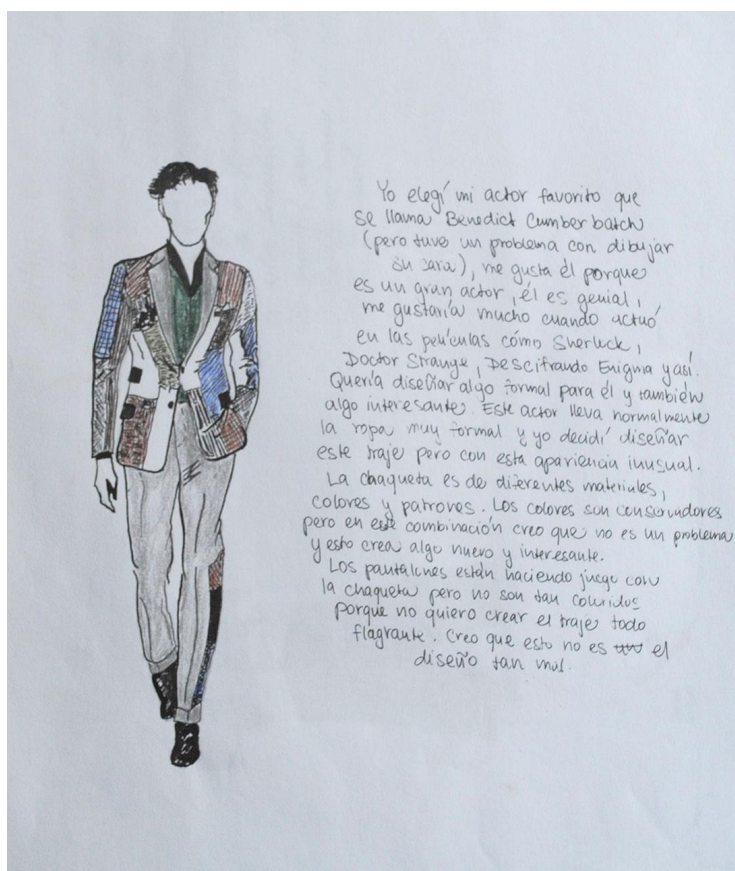 Yo elegí mi actor favorito que
se llama Benedict Cumberbatch
(pero tuve un problema con dibujar
su cara), me gusta él porque
es un gran actor, él es genial,
me gustaría mucho cuando actuó
en las películas cómo Sherlock,
Doctor Strange, Descifrando Enigma y así.
Quería diseñar algo formal para él y también
algo interesante. Este actor lleva normalmente
la ropa muy formal y yo decidí diseñar
este traje pero con esta apariencia inusual.
La chaqueta es de diferentes materiales,
colores y patrones. Los colores son conservadores
pero en este combinación creo que no es un problema
y esto crea algo nuevo y interesante.
Los pantalones están haciendo juego con
la chaqueta pero no son tan coloridos
porque no quiero crear el traje todo
flagrante. Creo que esto no es el
diseño tan mal.